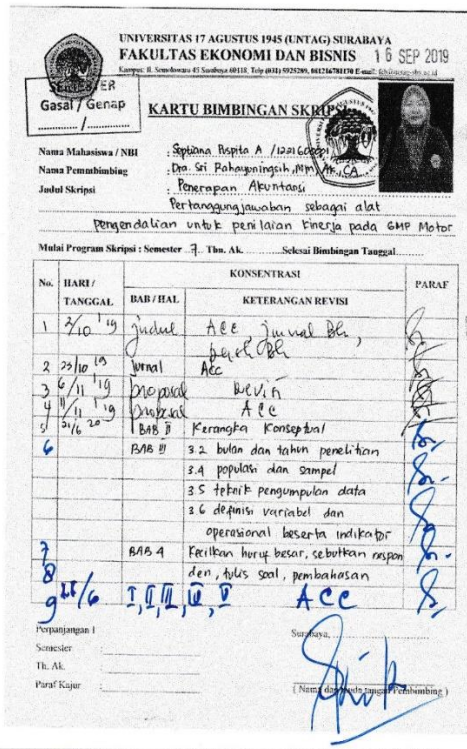 UNIVERSITAS 17 AGUSTUS 1945 (UNTAG) SURABAYA
FAKULTAS EKONOMI DAN BISNIS
16 SEP 2019
Kampus: Jl. Semolowaru 45 Surabaya 60118, Telp (031) 5925289, 081216781170 E-mail:
SEMESTER
Gasal / Genap
........../..........
KARTU BIMBINGAN SKRIPSI
Nama Mahasiswa / NBI : Septiana Puspita A /
Nama Pemmbimbing : Dra. Sri Rahayuningsih, MM, Ak, CA
Judul Skripsi : Penerapan Akuntansi
Pertanggungjawaban sebagai alat
pengendalian untuk penilaian kinerja pada GMP Motor
Mulai Program Skripsi : Semester 7 Thn. Ak. ..........Selesai Bimbingan Tanggal..........
No. HARI / TANGGAL KONSENTRASI PARAF
BAB / HAL KETERANGAN REVISI
1 2/10 '19 judul ACC jurnal
2 23/10 19 jurnal Acc
3 6/11 '19 proposal Revisi
4 11/11 19 proposal ACC
5 21/6 20 BAB II Kerangka Konseptual
6 BAB III 3.2 bulan dan tahun penelitian
3.4 populasi dan sampel
3.5 teknik pengumpulan data
3.6 definisi variabel dan
operasional beserta indikator
7 BAB 4 Kecilkan huruf besar, sebutkan respon
8 den, tulis soal, pembahasan
9 /6 I, II, III, IV, V ACC
Perpanjangan I
Semester :
Th. Ak. :
Paraf Kajur :
Surabaya,
( Nama dan tanda tangan Pembimbing )